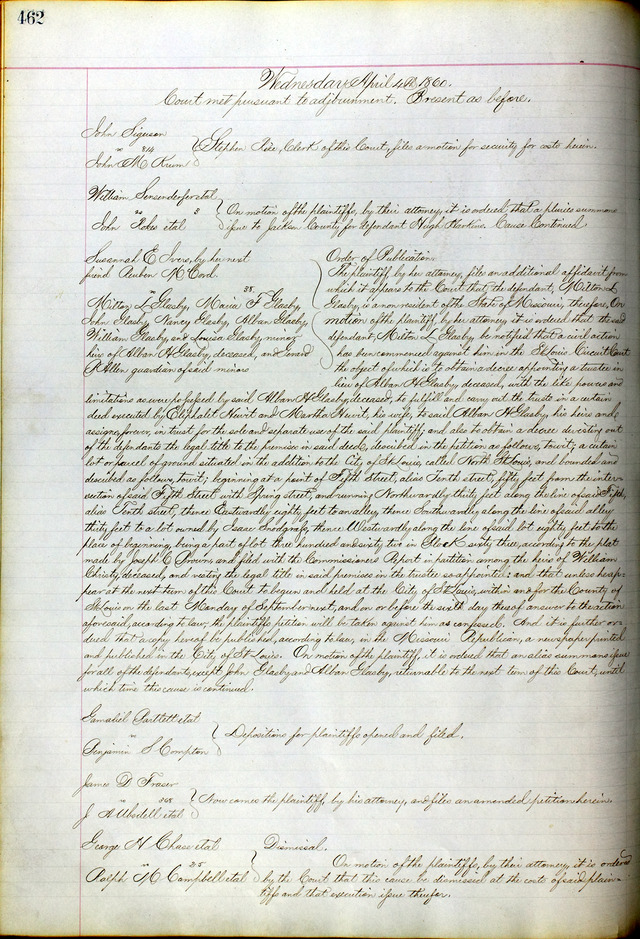 462
Wednesday April 4th 1860.
Court met pursuant to adjournment. Present as before.
John Siguson
vs 214 Stephen Rice, Clerk of this Court, files a motion for security for costs herein.
John M Krum
William Sensenderfer etal
vs 3 On motion of the plaintiffs, by their attorney, it is ordered that a pluries summons
John Pokes etal issue to Jackson County for defendant Hugh Harkins. Cause Continued
Susannah E Ivers, by her next Order of Publication.
friend Reuben M Cord. The plaintiff by her attorney, file an additional affidavit from
vs 38 which it appears to the Court that the defendant, Milton L
Milton L Glasby, Maria F Glasby Glasby, is a non resident of the State of Missouri, therefore, On
John Glasby, Nancy Glasby, Alban Glasby motion of the plaintiff by her attorney it is ordered that the said
William Glasby, and Louisa Glasby, minor defendant, Milton L Glasby be notified that a civil action
heirs of Alban H Glasby, deceased, and has been commenced against him in the St Louis Circuit Court
R Allen guardian of said minors the object of which is to obtain a decree appointing a trustee in
lieu of Alban H Glasby, deceased, with the like powers and
limitations as were possessed by said Alban H Glasby, deceased, to fulfill and carry out the trusts in a certain
deed executed by and Martha his wife, to said Alban H Glasby, his heirs and
assigns, forever, in trust for the sole and separate use of the said plaintiff, and also to obtain a decree divesting out
of the defendants the legal title to the premises in said deed, described in the petition as follows, towit; a certain
lot or parcel of ground situated in the addition to the City of St Louis, called North St Louis, and bounded and
described as follows, towit; beginning at a point of Fifth Street, alias Tenth street, fifty feet from the inter-
section of said Fifth Street with Spring street, and running Northwardly thirty feet along the line of said Fifth,
alias Tenth street, thence Eastwardly eighty feet to an alley, thence Southwardly along the line of said alley
thirty feet to a lot owned by Isaac Snodgrass, thence Westwardly along the line of said lot eighty feet to the
place of beginning, being a part of lot three hundred and sixty two in Block sixty three, according to the plat
made by Joseph C Brown and filed with the Commissioners Report in partition among the heirs of William
Christy, deceased, and vesting the legal title in said premises in the trustee so appointed; and that unless he ap-
pear at the next term of this Court to begun and held at the City of St Louis, within and for the County of
St Louis on the last Monday of September next, and on or before the sixth day thereof answer to the action
aforesaid, according to law, the plaintiffs petition will be taken against him as confessed. And it is further or-
dered that a copy hereof be published, according to law, in the Missouri Republican, a newspaper printed
and published in the City of St. Louis. On motion of the plaintiff, it is ordered that an alias summons issue
for all of the defendants, except John Glasby and Alban Glasby, returnable to the next term of this Court, until
which time this cause is continued.
Gamaliel Bartlett etal
vs Depositions for plaintiffs opened and filed.
Benjamin S Compton
James D Fraser
vs 368 Now comes the plaintiff, by his attorney, and files an amended petition herein.
J A Ubsdell etal
George H Chase etal Dismissal.
vs 25 On motion of the plaintiffs, by their attorney, it is ordered
Ralph M Campbell etal by the Court that this cause be dismissed at the costs of said plain-
tiffs and that execution issue therefor.